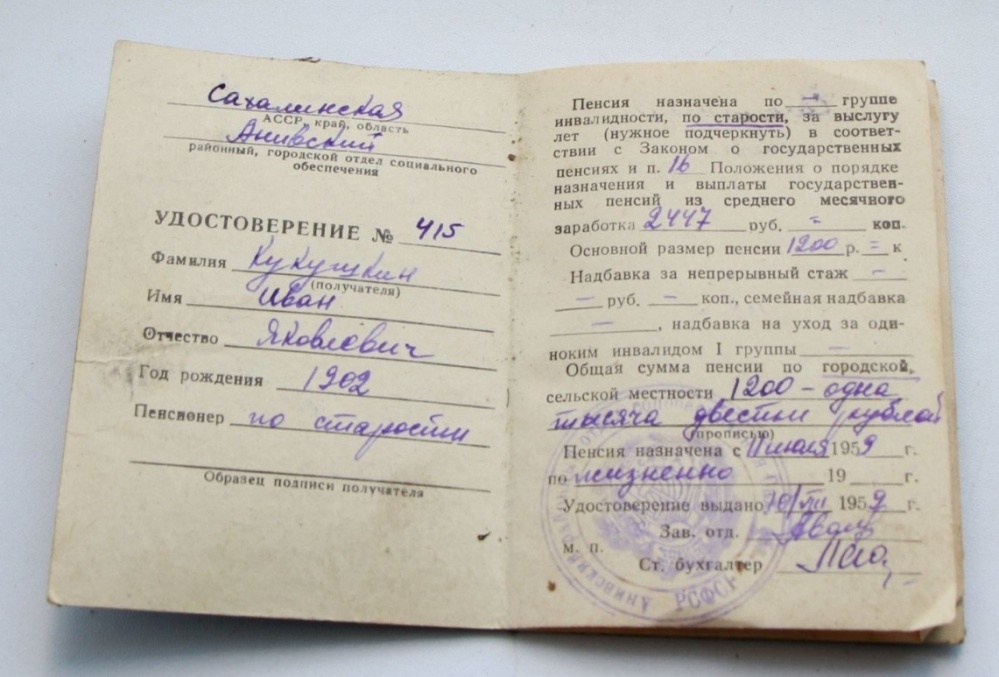 Сахалинская
АССР, край, область
Анивский
районный, городской отдел социального
обеспечения
УДОСТОВЕРЕНИЕ № 415
Фамилия Кукушкин
(получателя)
Имя Иван
Отчество Яковлевич
Год рождения 1902
Пенсионер по старости
Образец подписи получателя
Пенсия назначена по — группе
инвалидности, по старости, за выслугу
лет (нужное подчеркнуть) в соответ-
ствии с Законом о государственных
пенсиях и п. 16 Положения о порядке
назначения и выплаты государствен-
ных пенсий из среднего месячного
заработка 2447 руб. = коп.
Основной размер пенсии 1200 р. = к
Надбавка за непрерывный стаж —
— руб. — коп., семейная надбавка
—, надбавка на уход за оди-
ноким инвалидом I группы —
Общая сумма пенсии по городской,
сельской местности 1200 – одна
тысяча двести рублей
(прописью)
Пенсия назначена с 11 июля 1959 г.
по жизненно 19 г.
Удостоверение выдано 10/VIII 1959 г.
Зав. отд.
м. п.
Ст. бухгалтер
РСФСР